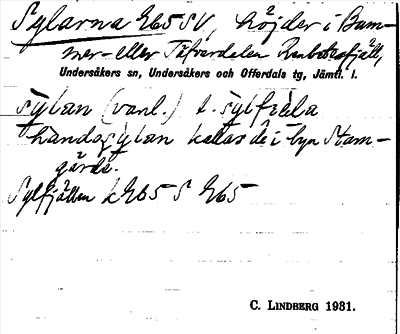 Sylarna 265 SV, höjder i Bum-
mer- eller Tåfvardalen Renbetesfjäll,
Undersåkers sn, Undersåkers och Offerdals tg, Jämtl. l.
sylan (vanl.) l.
kallas de i byn Stam-
gärde.
Sylfjällen k 265 S 265
C. LINDBERG 1931.